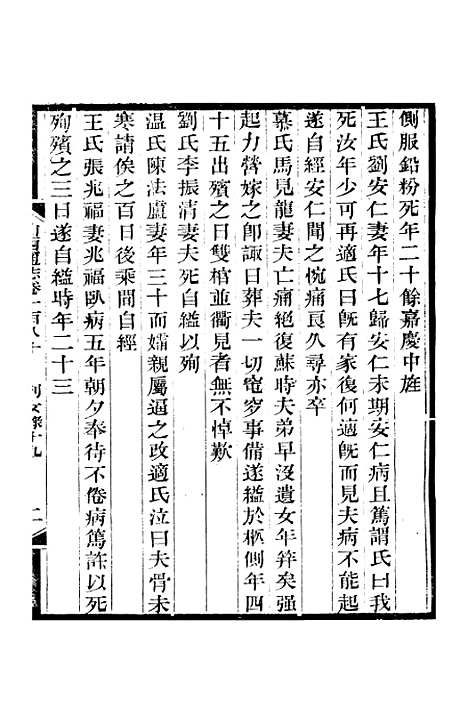 側服鉛粉死年二十餘嘉慶中旌
王氏劉安仁妻年十七歸安仁未期安仁病且篤謂氏曰我
死汝年少可再適氏曰旣有家復何適旣而見夫病不能起
遂自經安仁聞之惋痛良久尋亦卒
慕氏馬見龍妻夫亡痛絕復蘇時夫弟早沒遺女年笄矣强
起力營嫁之卽諏日葬夫一切窀穸事備遂縊於柩側年四
十五出殯之日雙棺並衢見者無不悼歎
劉氏李振清妻夫死自縊以殉
温氏陳法盧妻年三十而孀親屬逼之改適氏泣曰夫骨未
寒請俟之百日後乘間自經
王氏張兆福妻兆福臥病五年朝夕奉待不倦病篤許以死
殉殯之三日遂自縊時年二十三
山西通志卷一百八十 列女錄十九 二